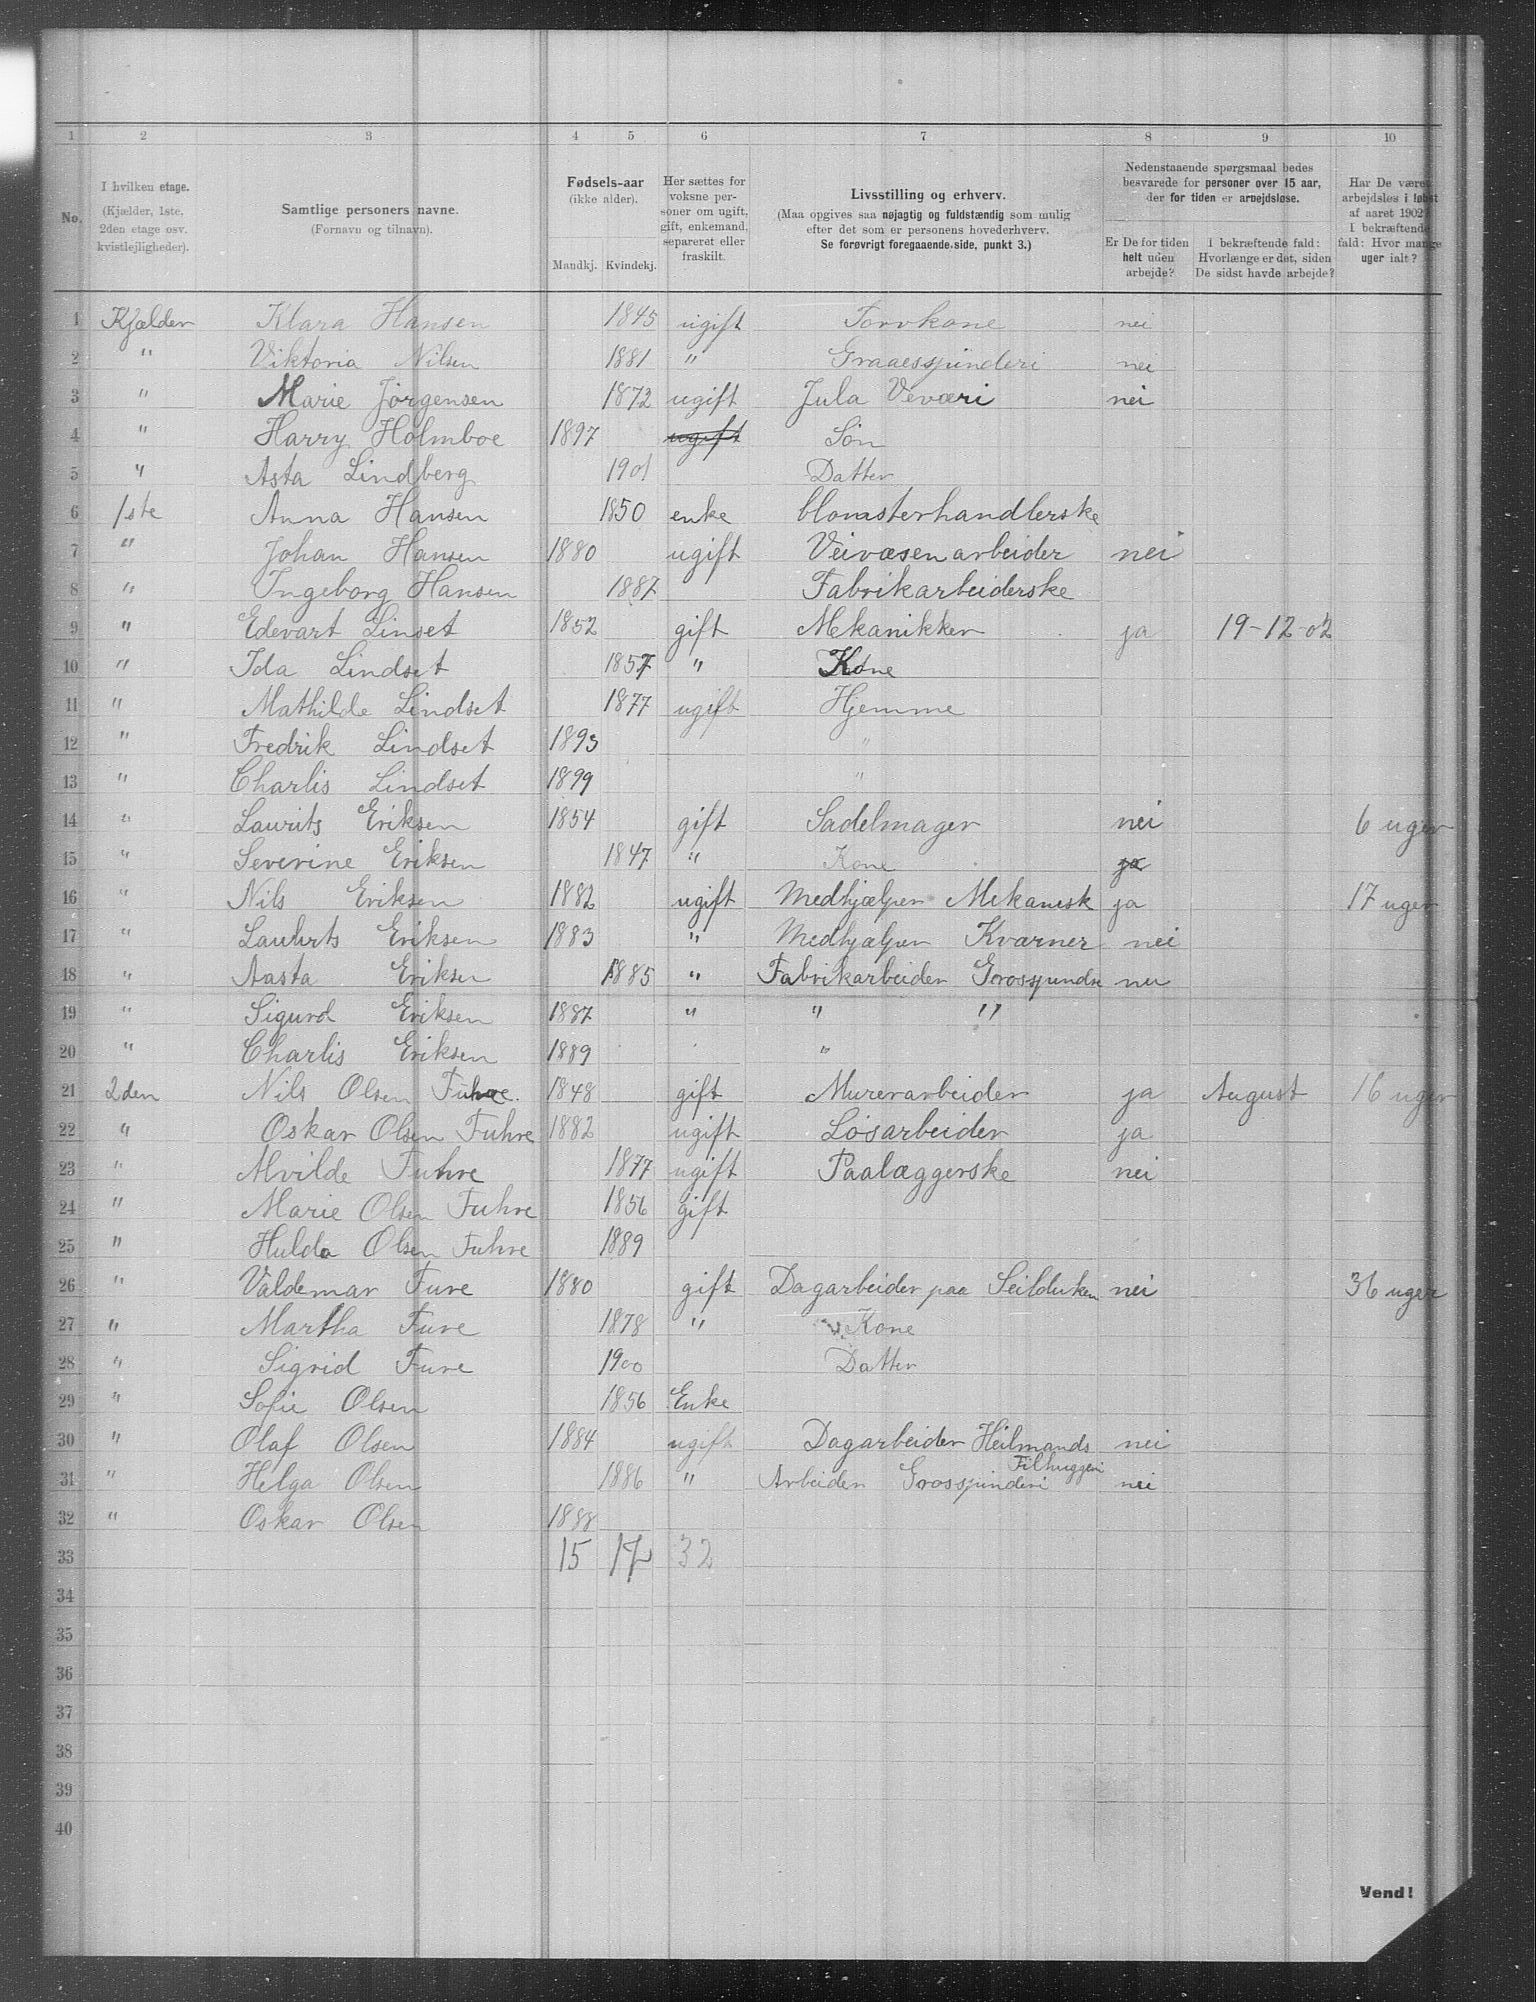 1 2 3 4 5 6 7 8 9 10
No.
I hvilken etage.
(Kjælder, 1ste,
2den etage osv.
kvistlejligheder).
Samtlige personers navne.
(Fornavn og tilnavn).
Fødsels-aar
(ikke alder).
Mandkj. Kvindekj.
Her sættes for
voksne per-
soner om ugift,
gift, enkemand,
separeret eller
fraskilt.
Livsstilling og erhverv.
(Maa opgives saa nøjagtig og fuldstændig som mulig
efter det som er personens hovederhverv.
Se forøvrigt foregaaende side, punkt 3.)
Nedenstaaende spørgsmaal bedes
besvarede for personer over 15 aar,
der for tiden er arbejdsløse.
Er De for tiden
helt uden
arbejde?
I bekræftende fald:
Hvorlænge er det, siden
De sidst havde arbejde?
Har De været
arbejdsløs i løbet
af aaret 1902?
I bekræftende
fald: Hvor mange
uger ialt?
1 Kjælder Klara Hansen 1845 ugift Torvkone nei
2 " Viktoria Nilsen 1881 " Graaesspinderi nei
3 " Marie Jørgensen 1872 ugift Jula Veværi nei
4 " Harry Holmboe 1897 ugift Søn
5 " Asta Lindberg 1901 Datter
6 1ste Anna Hansen 1850 enke blomsterhandlerske
7 " Johan Hansen 1880 ugift Veivæsenarbeider nei
8 " Ingeborg Hansen 1887 Fabrikarbeiderske
9 " Edevart Linset 1852 gift Mekanikker ja 19-12-02
10 " Ida Lindset 1857 " Kone
11 " Mathilde Lindset 1877 ugift Hjemme
12 " Fredrik Lindset 1893 "
13 " Charlis Lindset 1899 "
14 " Laurits Eriksen 1854 gift Sadelmager nei 6 uger
15 " Severine Eriksen 1847 " Kone ja
16 " Nils Eriksen 1882 ugift Medhjælper Mekanisk ja 17 uger
17 " Lauhrts Eriksen 1883 " Medhjælper Kværner nei
18 " Aasta Eriksen 1885 " Fabrikarbeider Grosspindre nei
19 " Sigurd Eriksen 1887 " " "
20 " Charlis Eriksen 1889 "
21 2den Nils Olsen Fuhre. 1848 gift Murerarbeider ja August 16 uger
22 " Oskar Olsen Fuhre 1882 ugift Løsarbeider ja
23 " Alvilde Fuhre 1877 ugift Paalæggerske nei
24 " Marie Olsen Fuhre 1856 gift
25 " Hulda Olsen Fuhre 1889
26 " Valdemar Fure 1880 gift Dagarbeider paa Seilduken nei 36 uger
27 " Martha Fure 1878 " Kone
28 " Sigrid Fure 1900 Datter
29 " Sofie Olsen 1856 Enke
30 " Olaf Olsen 1884 ugift Dagarbeider Heilmands nei
Filhuggeri
31 " Helga Olsen 1886 " Arbeider Grosspinderi nei
32 " Oskar Olsen 1888
33 15 17 32
34
35
36
37
38
39
40
Vend!